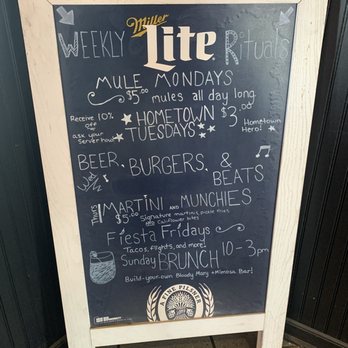 Miller
WEEKLY Lite Rituals
MULE MONDAYS
$5.00 mules all day long
Receive 10% off
ask your server how
HOMETOWN TUESDAYS
$3.00
Hometown Hero!
Wed
BEER, BURGERS, &
BEATS
Thurs
MARTINI AND MUNCHIES
$5.00 Signature martinis, pickle fries,
and Califlower bites
Fiesta Fridays
Tacos, flights, and more!
Sunday BRUNCH 10-3pm
Build-your-own Bloody Mary + Mimosa Bar!
A FINE PILSNER